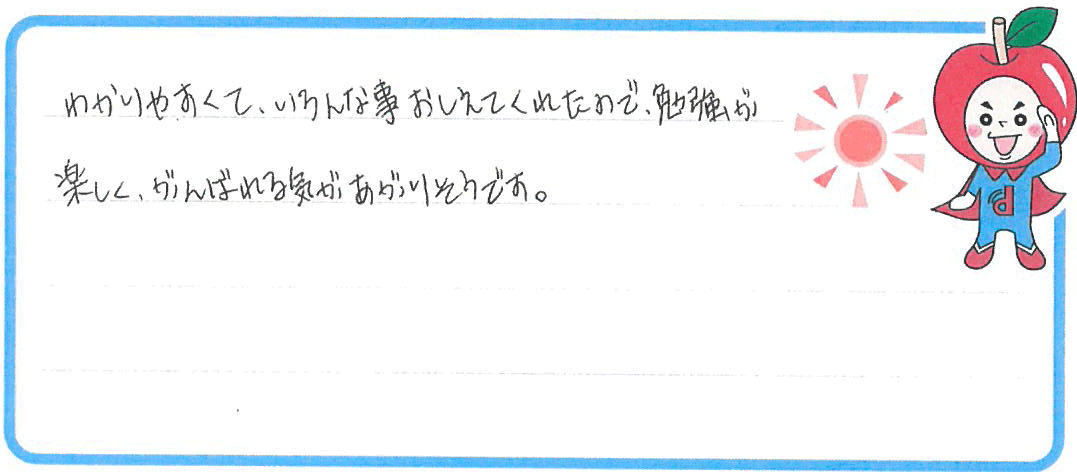 わかりやすくて、いろんな事おしえてくれたので、勉強が
楽しく、がんばれる気があがりそうです。